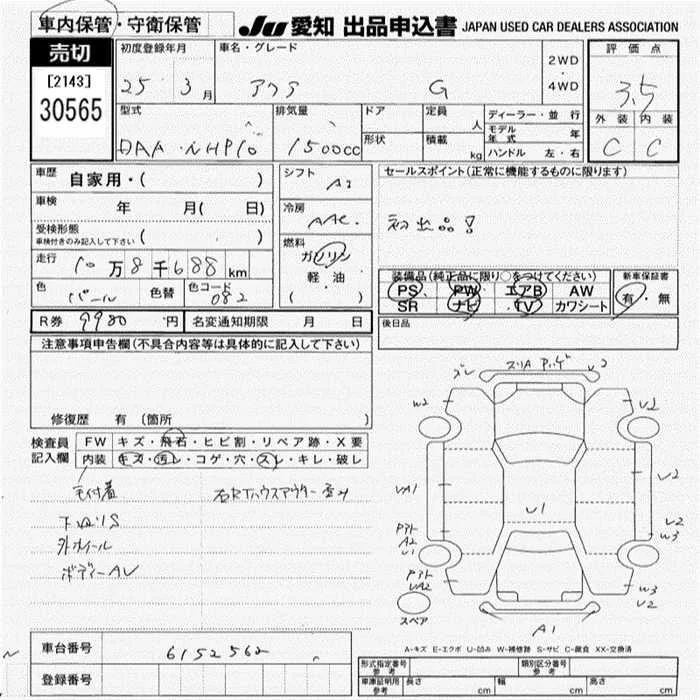 車内保管・守衛保管
JU 愛知 出品申込書 JAPAN USED CAR DEALERS ASSOCIATION
売切
[2143]
30565
初度登録年月
25 3月
車名・グレード
アクア G
2WD
・
4WD
評価点
3.5
外装 内装
C C
型式
DAA-NHP10
排気量
1500cc
ドア
形状
定員
人
積載
kg
ディーラー・並行
モデル年式 年
ハンドル 左・右
車歴
自家用・( )
車検
年 月( 日)
受検形態
車検付きのみ記入して下さい ( )
走行
10万8千688km
色
パール
色替
色コード
082
シフト
AT
冷房
AAC
燃料
ガソリン
軽・油
( )
セールスポイント(正常に機能するものに限ります)
初出品!
装備品(純正品に限り○をつけてください)
PS PW エアB AW
SR ナビ TV カワシート
新車保証書
有・無
後日品
R券 9980円 名変通知期限 月 日
注意事項申告欄(不具合内容等は具体的に記入して下さい)
修復歴 有 〔箇所 〕
検査員
記入欄
FW キズ・飛石・ヒビ割・リペア跡・X要
内装 キズ・汚レ・コゲ・穴・スレ・キレ・破レ
毛付着
下廻りS
外ホイール
ボディーAU
ズレ
スリA
U2
W2
U2
UA1
U1
U2
U2
W3
A2
U1
UA2
W3
U2
スペア
A1
A-キズ E-エクボ U-凹み W-補修跡 S-サビ C-腐食 XX-交換済
車台番号
6152562
登録番号
形式指定番号
参考
類別区分番号
参考
車庫証明用
参考
長さ cm
幅 cm
高さ cm